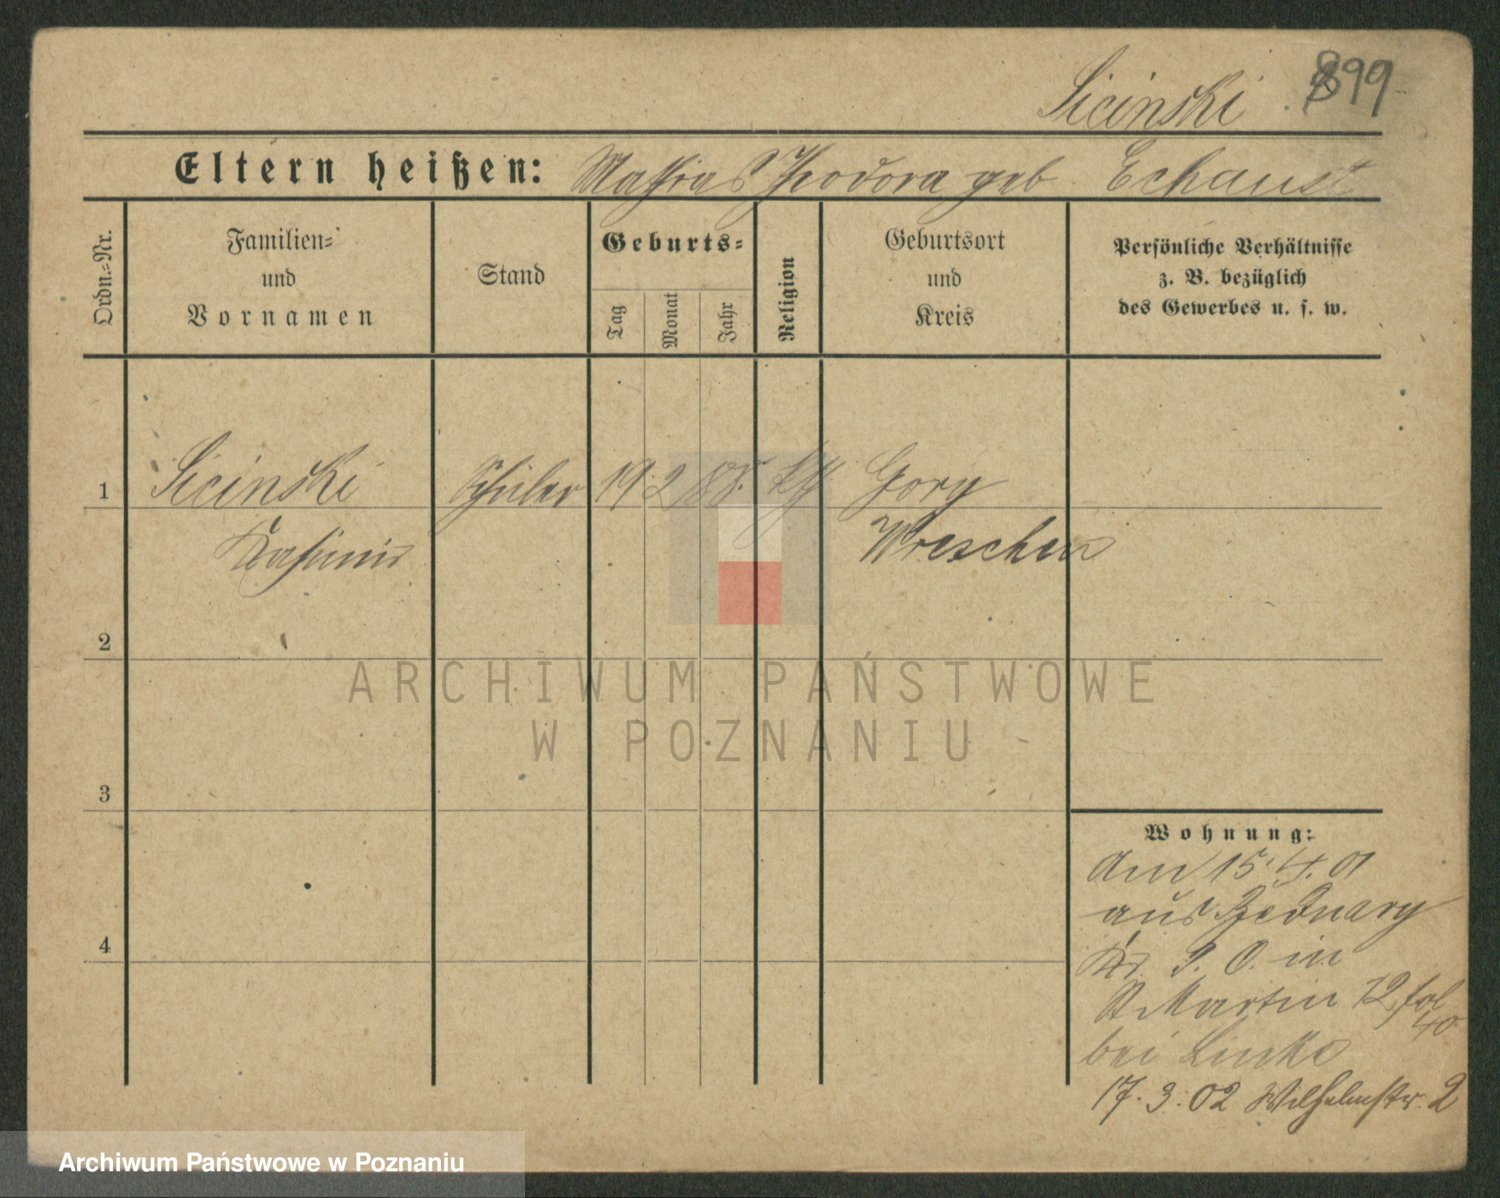 Sicinski 899
Eltern heißen: Mathias Theodora geb Echaust
Ordn.=Nr.
Familien=
und
Vornamen
Stand
Geburts=
Tag
Monat
Jahr
Religion
Geburtsort
und
Kreis
Persönliche Verhältnisse
z. B. bezüglich
des Gewerbes u. s. w.
1 Sicinski Schüler 19 2 88. kth Gory
Kasimir Wreschen
2
3
4
ARCHIWUM PAŃSTWOWE
W POZNANIU
Wohnung:
Am 15.4.01
aus
Kr. P. O. in
St Martin 72, fol
40
bei Linke
17.3.02 Wilhelmstr. 2
Archiwum Państwowe w Poznaniu